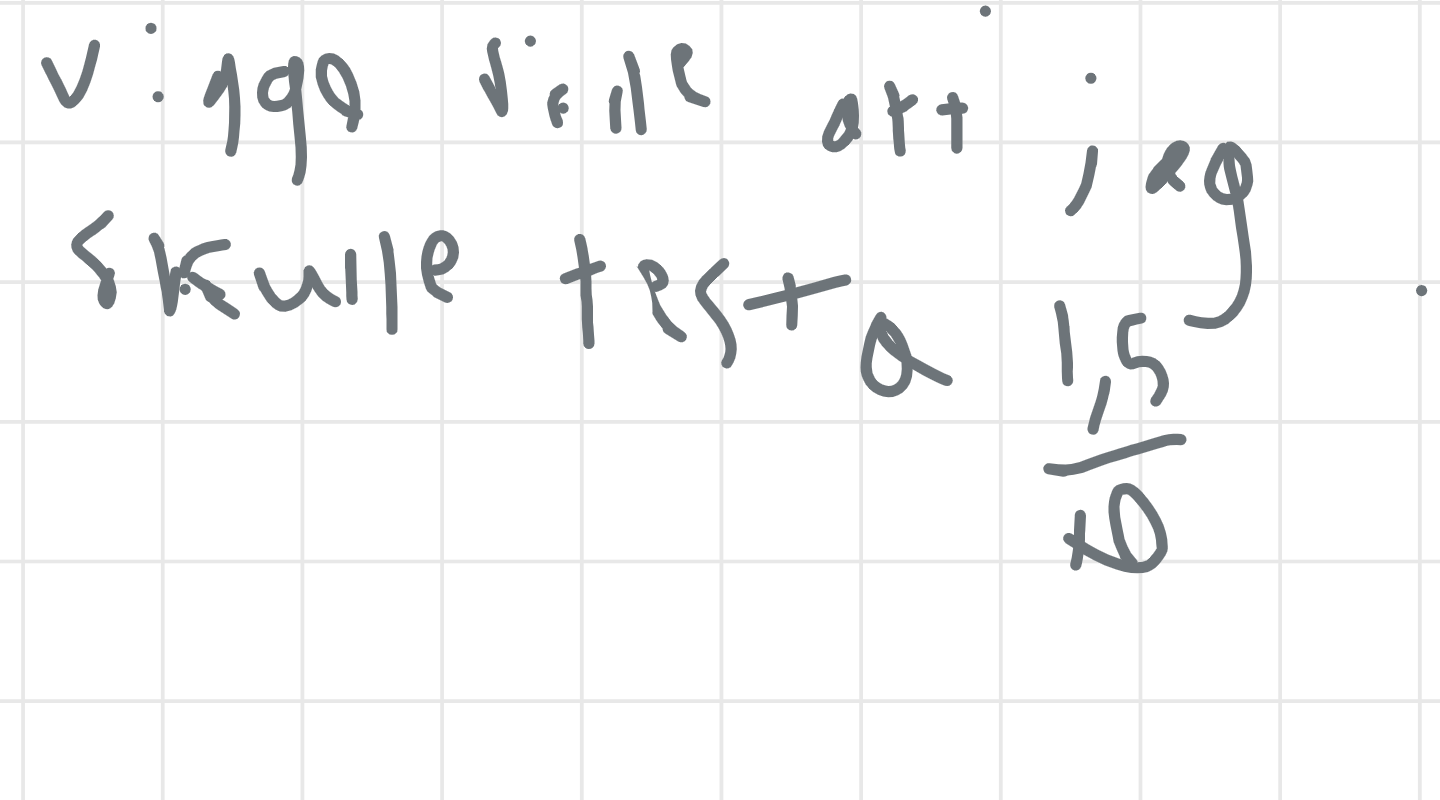 Viggo ville att jag
skulle testa 1,5
10